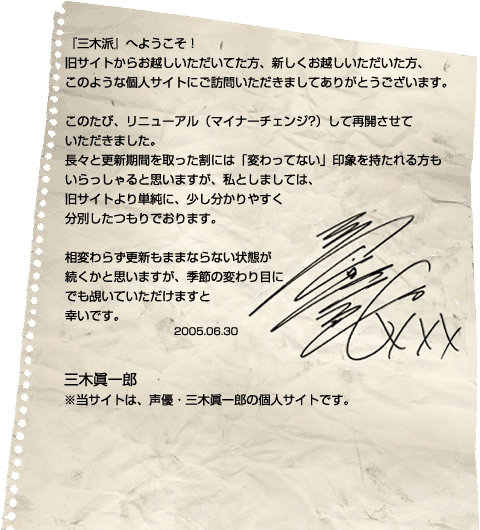 『三木派』へようこそ！
旧サイトからお越しいただいてた方、新しくお越しいただいた方、
このような個人サイトにご訪問いただきましてありがとうございます。
このたび、リニューアル（マイナーチェンジ?）して再開させて
いただきました。
長々と更新期間を取った割には「変わってない」印象を持たれる方も
いらっしゃると思いますが、私としましては、
旧サイトより単純に、少し分かりやすく
分別したつもりでおります。
相変わらず更新もままならない状態が
続くかと思いますが、季節の変わり目に
でも覗いていただけますと
幸いです。
2005.06.30
三木眞一郎
※当サイトは、声優・三木眞一郎の個人サイトです。